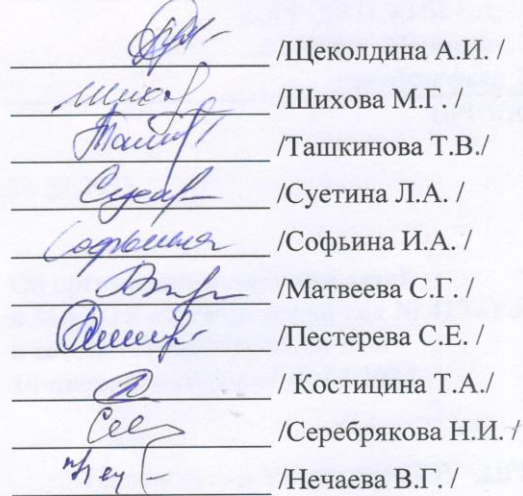 /Щеколдина А.И. /
/Шихова М.Г. /
/Ташкинова Т.В./
/Суетина Л.А. /
/Софьина И.А. /
/Матвеева С.Г. /
/Пестерева С.Е. /
/ Костицина Т.А./
/Серебрякова Н.И. /
/Нечаева В.Г. /